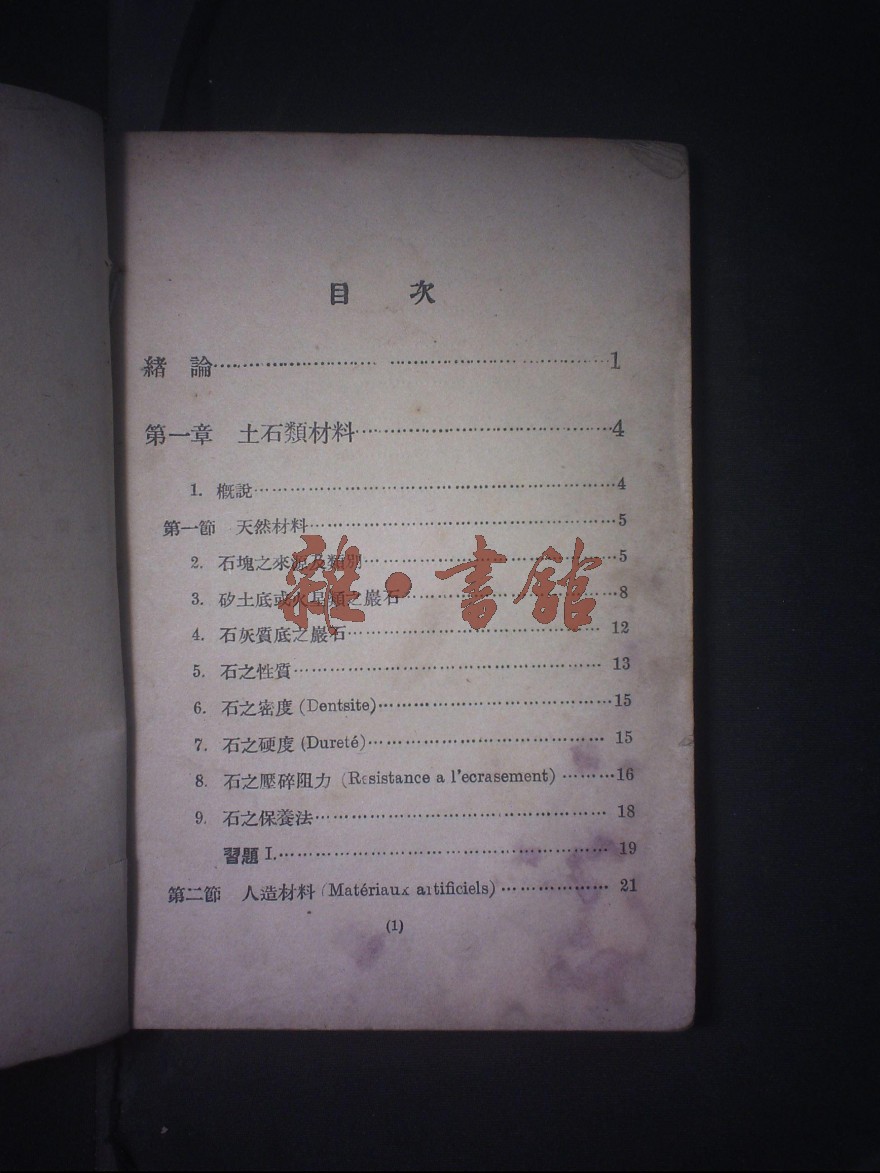 目 次
緒 論…………………………………………1
第一章 土石類材料…………………………4
1. 概說…………………………………………4
第一節 天然材料……………………………5
2. 石塊之來源及類別…………………………5
3. 矽土底或火星類之巖石……………………8
4. 石灰質底之巖石……………………………12
5. 石之性質……………………………………13
6. 石之密度(Dentsite)………………………15
7. 石之硬度(Dureté)…………………………15
8. 石之壓碎阻力(Resistance a l'ecrasement)………16
9. 石之保養法…………………………………18
習題 I.…………………………………………19
第二節 人造材料(Matériaux artificiels)………………21
(1)
雜·書館